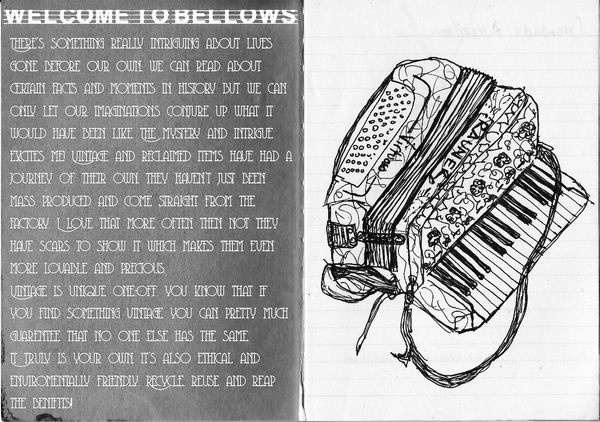 WELCOME TO BELLOWS
THERE'S SOMETHING REALLY INTRIGUING ABOUT LIVES
GONE BEFORE OUR OWN. WE CAN READ ABOUT
CERTAIN FACTS AND MOMENTS IN HISTORY BUT WE CAN
ONLY LET OUR IMAGINATIONS CONJURE UP WHAT IT
WOULD HAVE BEEN LIKE. THE MYSTERY AND INTRIGUE
EXCITES ME! VINTAGE AND RECLAIMED ITEMS HAVE HAD A
JOURNEY OF THEIR OWN. THEY HAVEN'T JUST BEEN
MASS PRODUCED AND COME STRAIGHT FROM THE
FACTORY. I LOVE THAT MORE OFTEN THEN NOT THEY
HAVE SCARS TO SHOW IT WHICH MAKES THEM EVEN
MORE LOVABLE AND PRECIOUS.
VINTAGE IS UNIQUE. ONE-OFF. YOU KNOW THAT IF
YOU FIND SOMETHING VINTAGE YOU CAN PRETTY MUCH
GUARENTEE THAT NO ONE ELSE HAS THE SAME.
IT TRULY IS YOUR OWN. IT'S ALSO ETHICAL AND
ENVIROMENTALLY FRIENDLY. RECYCLE, REUSE AND REAP
THE BENIFITS!